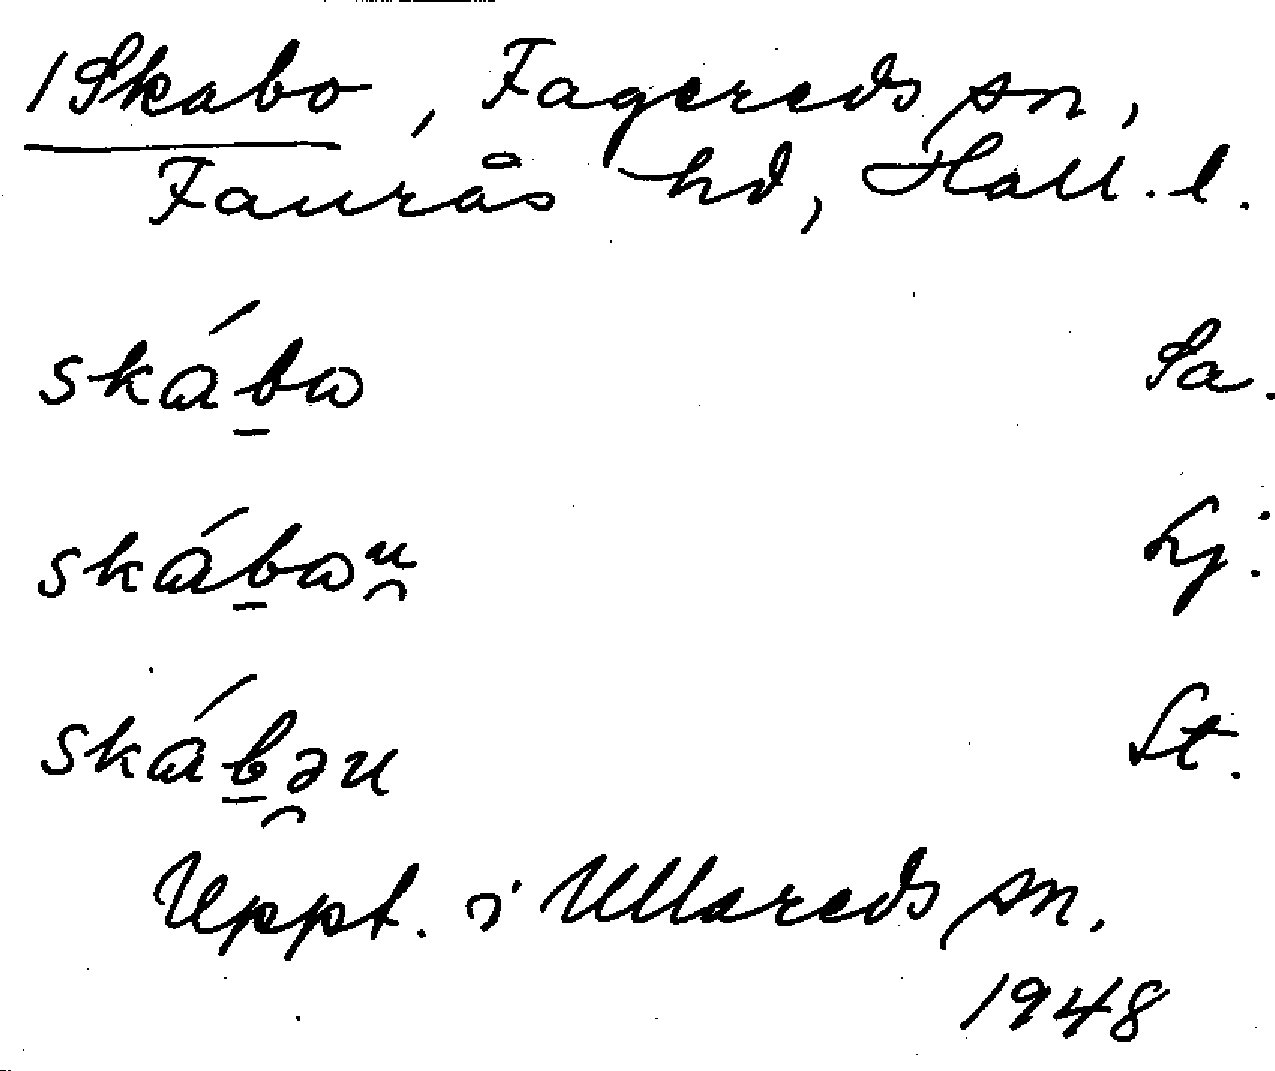 /Skabo, Fagereds sn,
Faurås hd, Hall. l.
skába̲ Sa.
ská Lj.
ská St.
Uppt. i Ullareds sn.
1948